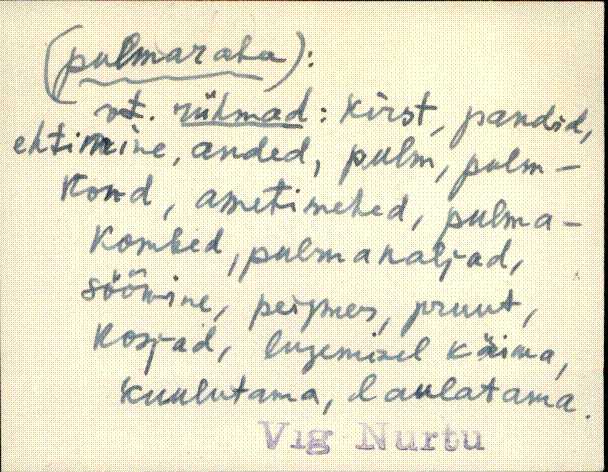 (pulmaraha):
vt. rühmad: Kirst, pandid,
ehtimine, anded, pulm, pulm-
kond, ametimehed, pulma-
kombed, pulmanaljad,
söömine, peigmes, pruut,
Kosjad, lugemisel käima,
kuulutama, laulatama.
Vig Nurtu